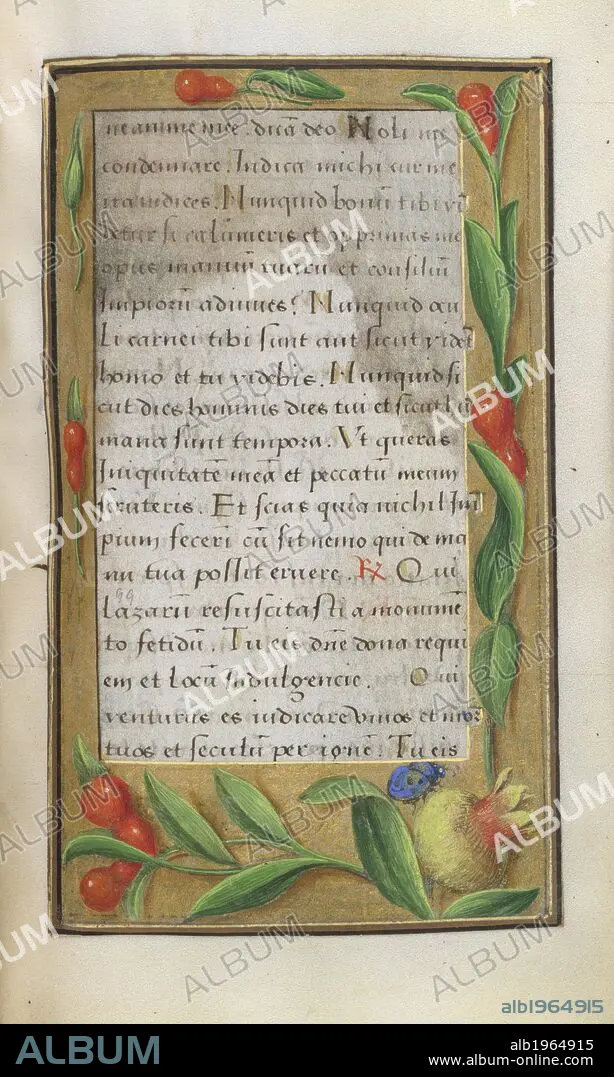 ne anime mee. dicā deo Noli me
condennare. Indica michi cur me
ita iudices. Nunquid bonū tibi vi
detur si calūmieris et opprimas me
opus manuū tuarū et consiliū
Impiorū adiuues? Nunquid ocu
Li carnei tibi sunt aut sicut videt
homo et tu videbis. Nunquid si
cut dies hominis dies tui et sicut hu
mana sunt tempora. Vt queras
Iniquitatē meā et peccatū meum
scruteris. Et scias quia nichil Im
pium fecerī cū sit nemo qui de ma
nu tua possit eruere. R Qui
Lazarū resuscitasti a monumē
to fetidū. Tu eis dn̄e dona requi
em et Locū Indulgencie. Qui
venturus es iudicare viuos et mor
tuos et seculū per ignē. Tu eis
99
ALBUM
alb1964915
ALBUM
alb1964915
www.album-online.com